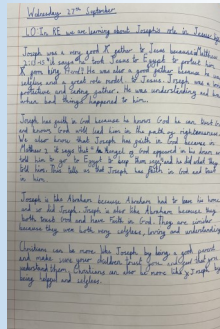 Wednesday 27th September
LO In RE we are learning about Joseph's role in Jesus'
Joseph was a very good father to Jesus because Matthew
2:13-15 it says "he took Jesus to Egypt to protect him
from king". He was also a good father because he was
selfless and a great role model to Jesus. Joseph was a
protective and loving father. He was understanding and
when bad things happened to him.
Joseph has faith in God because he knows God he can trust God
and knows God will lead him in the path of righteousness.
We also know that Joseph has faith in God because in
Matthew 2 it says that "the Angel of God appeared in his dream and
told him to go to Egypt to keep them safe" and he did what they
told him. This tells us that Joseph has faith in God and trust
in him.
Joseph is like Abraham because Abraham had to leave his home
and so did Joseph. Joseph is also like Abraham because they
both trust God and have faith in God. They are similar
because they were both very selfless, loving and understanding
Christians can be more like Joseph by being a good parent
and make sure your children trust you and that you
understand them. Christians can also be more like Joseph by
being helpful and selfless.